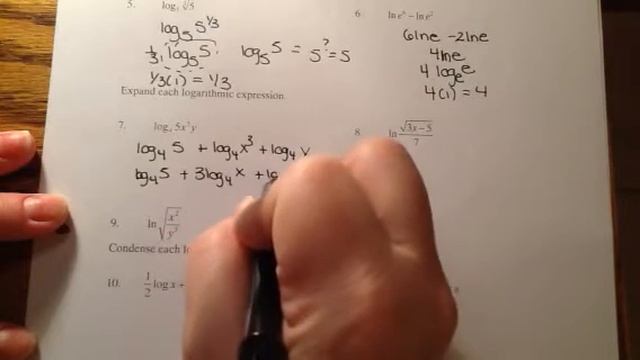 5. log₅ ∛5
log₅ 5^1/3
1/3 · log₅ 5 log₅ 5 = 5^? = 5
1/3(1) = 1/3
6. ln e⁶ − ln e²
6 ln e − 2 ln e
4 ln e
4 log_e e
4(1) = 4
Expand each logarithmic expression
7. log₄ 5x³y
log₄ 5 + log₄ x³ + log₄ y
log₄ 5 + 3log₄ x + lo
8. ln √(3x−5)/7
9. ln √(x²/y³)
Condense each
10. 1/2 log x +